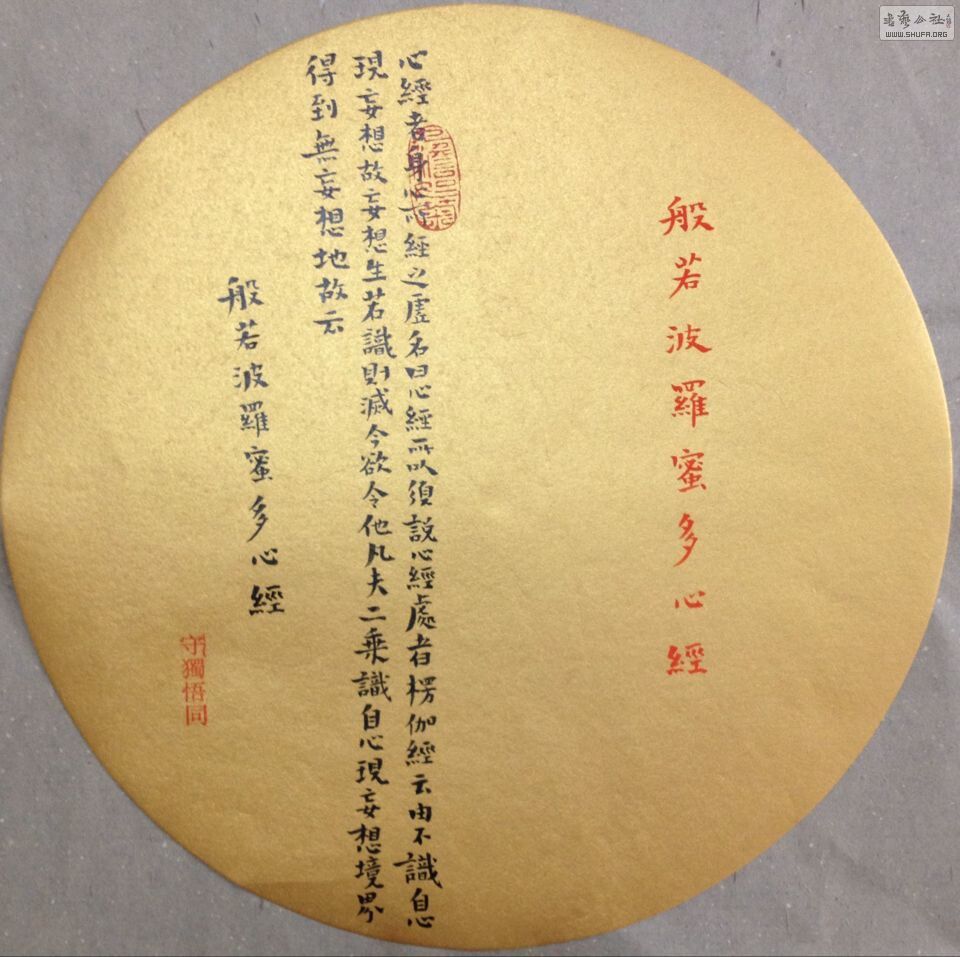 般若波羅蜜多心經
心經者身心所經之虛名曰心經所以須說心經處者楞伽經云由不識自心
現妄想故妄想生若識則滅今欲令他凡夫二乘識自心現妄想境界
得到無妄想地故云
般若波羅蜜多心經
守獨悟同
書藝公社
WWW.SHUFA.ORG